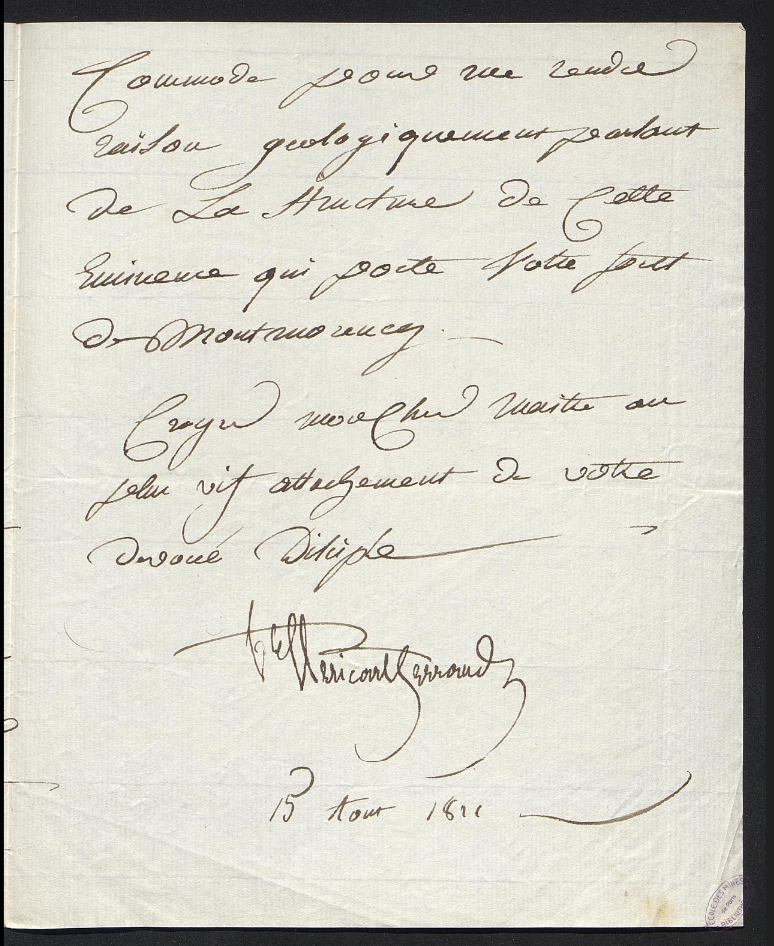 Commode pour me rendre
raison geologiquement parlant
de La Structure de Cette
Eminence qui porte Votre foret
de Montmorency. —
Croyez mon Cher Maitre au
plus vif attachement de votre
devoué Disciple
Hericart Ferrand
15 Aout 1821
ECOLE DES MINES
DE PARIS
BIBLIOTH